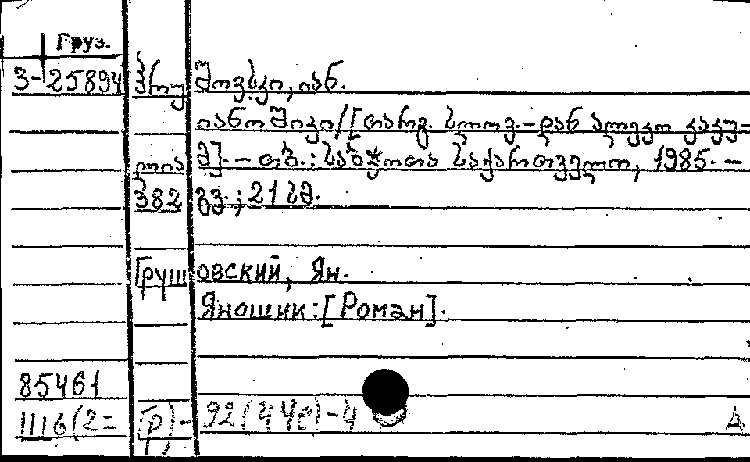 Груз.
3-25894 ჰრუშოვსკი, იან.
იანოშიკი/[თარგ. სლოვ.-დან ალეკო კაკუ-
ლია]. - თბ.: საბჭოთა საქართველო, 1985. -
382 გვ.; 21 სმ.
Грушовский, Ян.
Яношик: [Роман].
85461
1116(2=Гр)-92(44е)-4